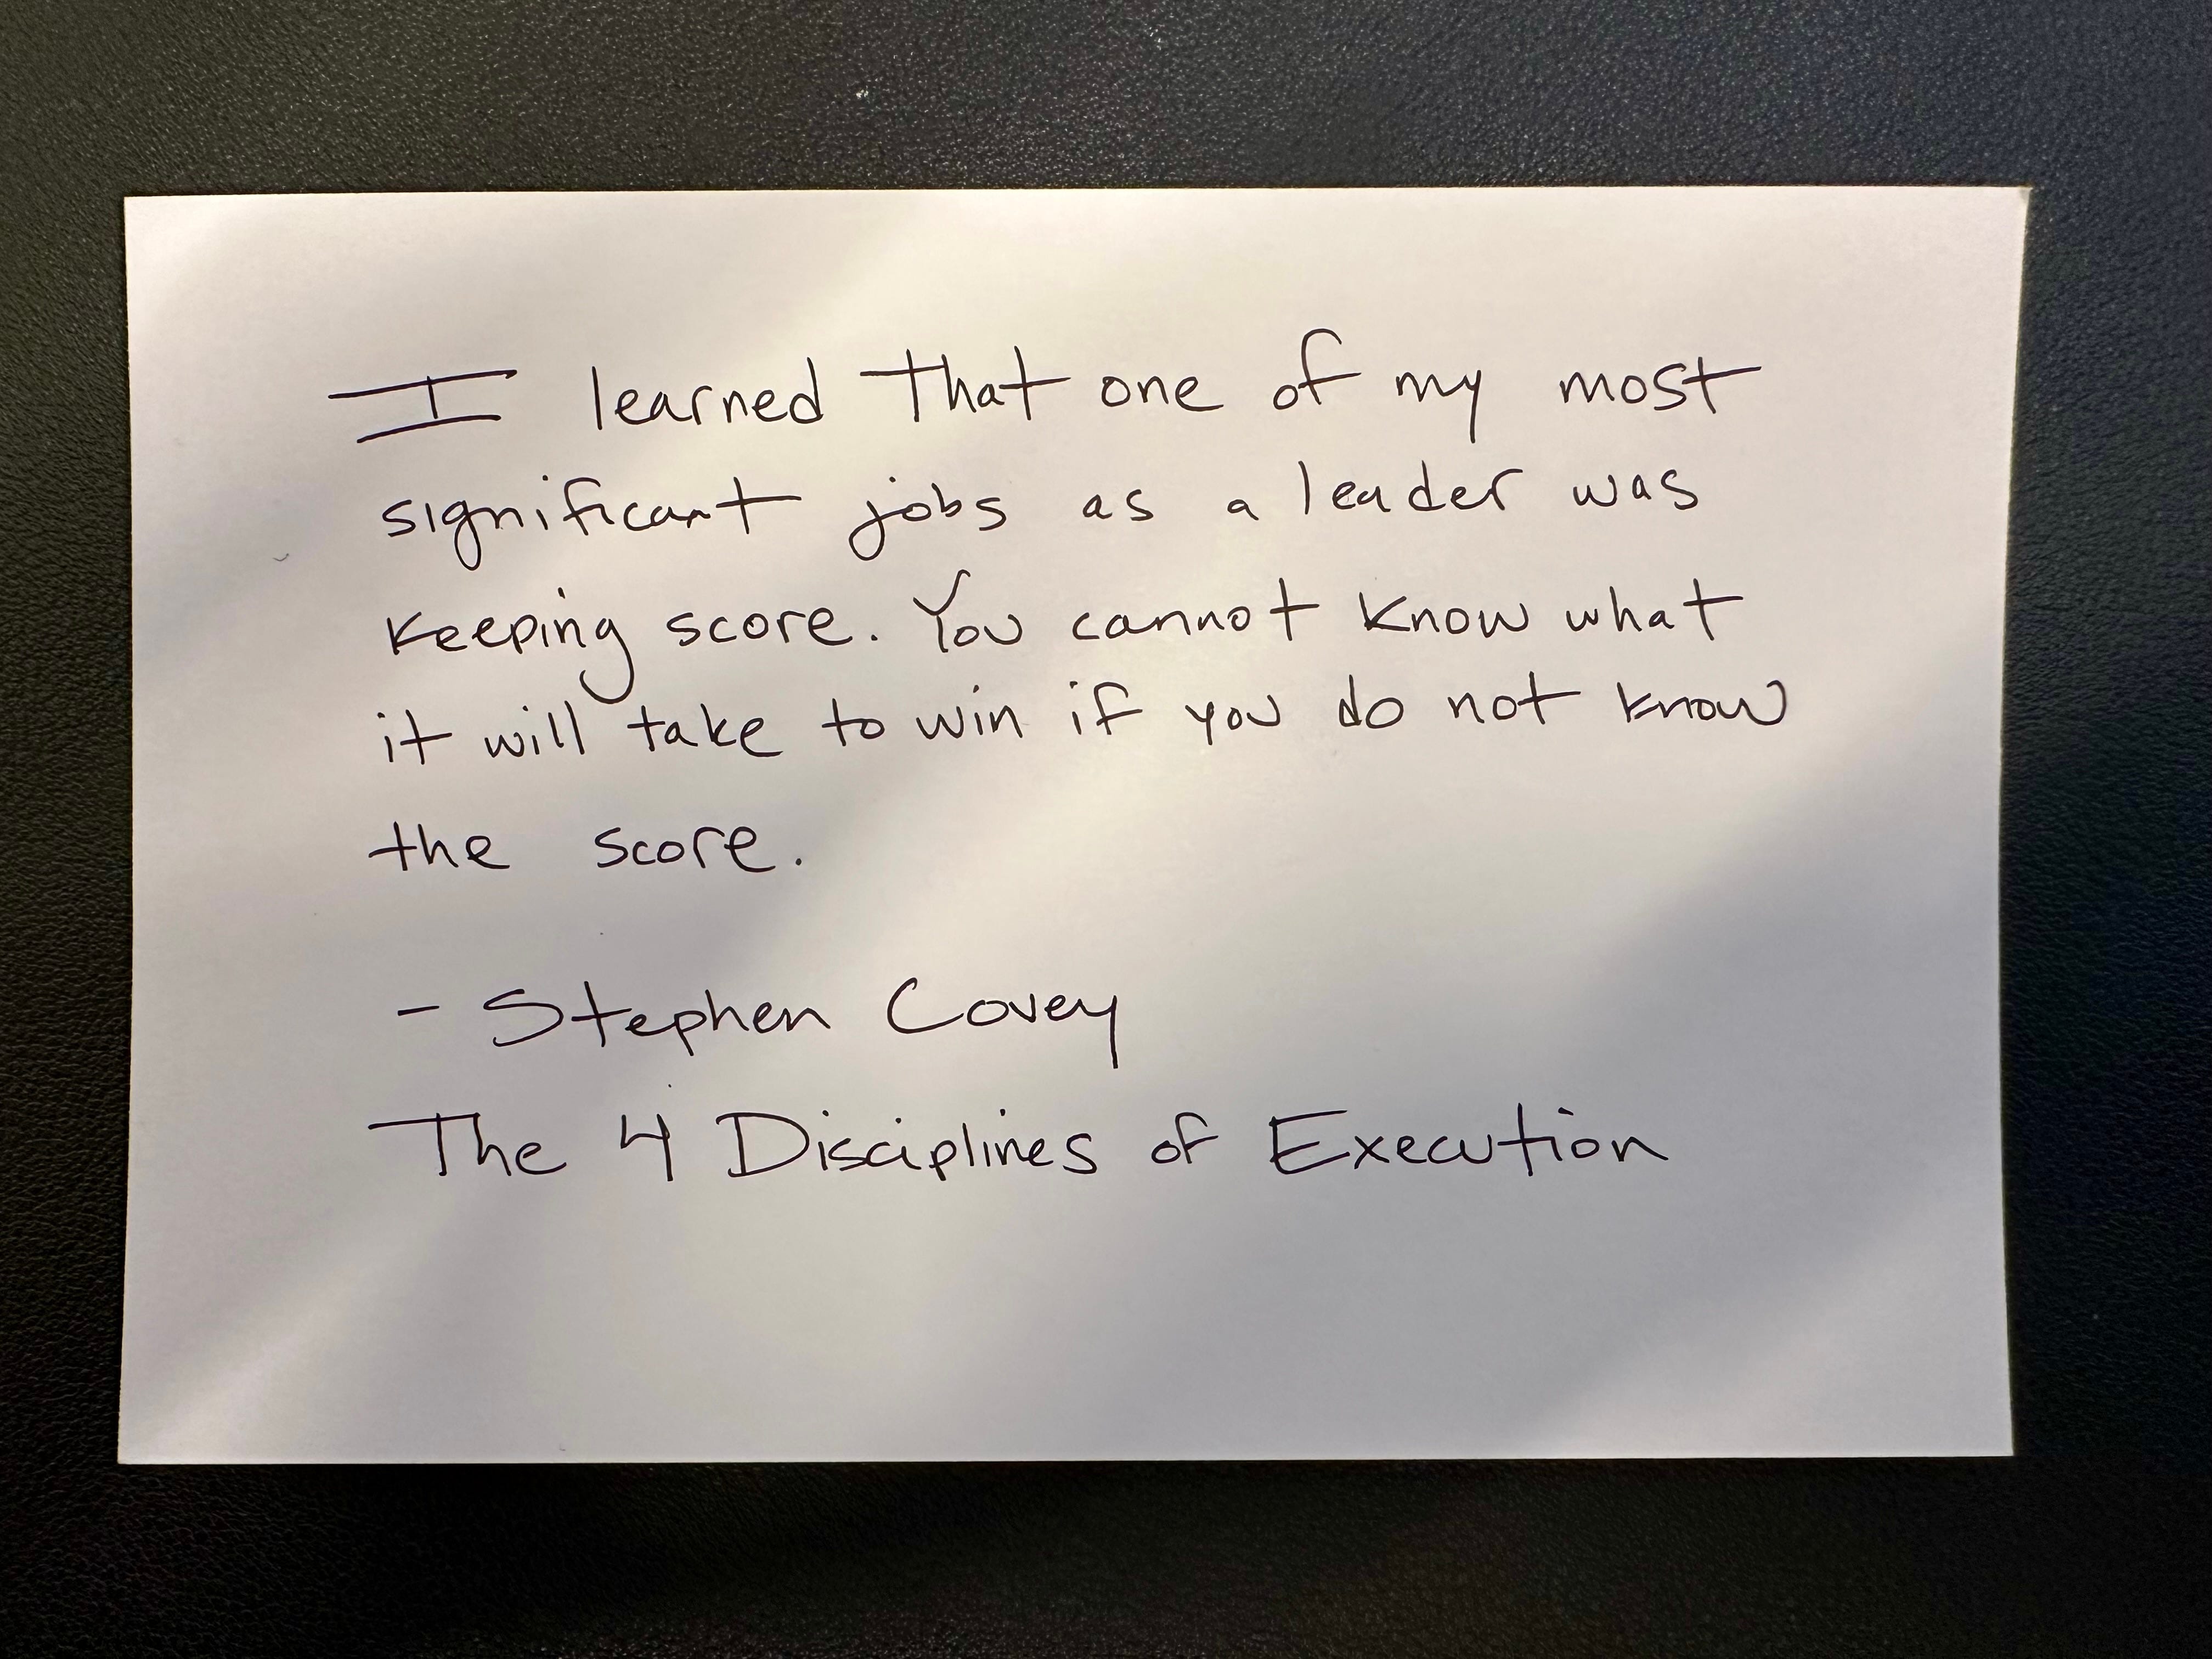 I learned that one of my most
significant jobs as a leader was
keeping score. You cannot know what
it will take to win if you do not know
the score.
- Stephen Covey
The 4 Disciplines of Execution